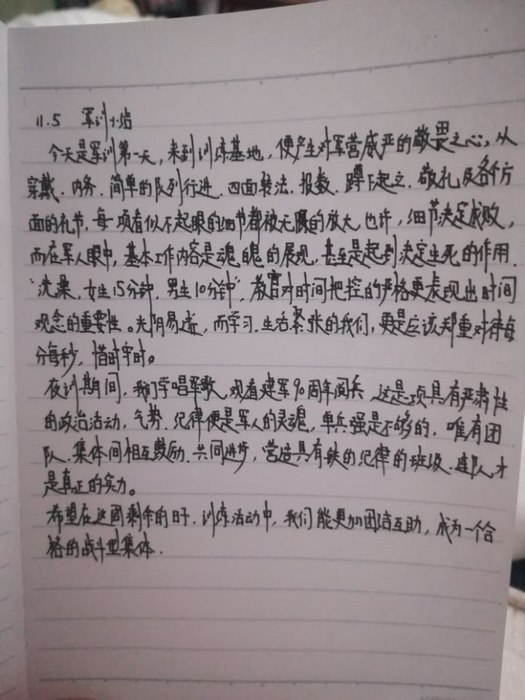 11.5 军训小结
今天是军训第一天，来到训练基地，便产生对军营威严的敬畏之心，从
穿戴、内务、简单的队列行进、四面转法、报数、蹲下起立、敬礼及各个方
面的礼节，每一项看似不起眼的细节都被无限的放大，也许，细节决定成败，
而在军人眼中，基本工作内容是魂魄的展现，甚至是起到决定生死的作用，
“洗澡，女生15分钟，男生10分钟”，教官对时间把控的严格更表现出时间
观念的重要性。光阴易逝，而学习、生活紧张的我们，更是应该郑重对待每
分每秒，惜时守时。
夜训期间，我们学唱军歌，观看建军90周年阅兵，这是一项具有严肃性
的政治活动，气势、纪律便是军人的灵魂，单兵强是不够的，唯有团
队、集体间相互鼓励、共同进步，营造具有铁的纪律的班级、连队才
是真正的实力。
希望在这周剩余的日子，训练活动中，我们能更加团结互助，成为一个合
格的战斗型集体．